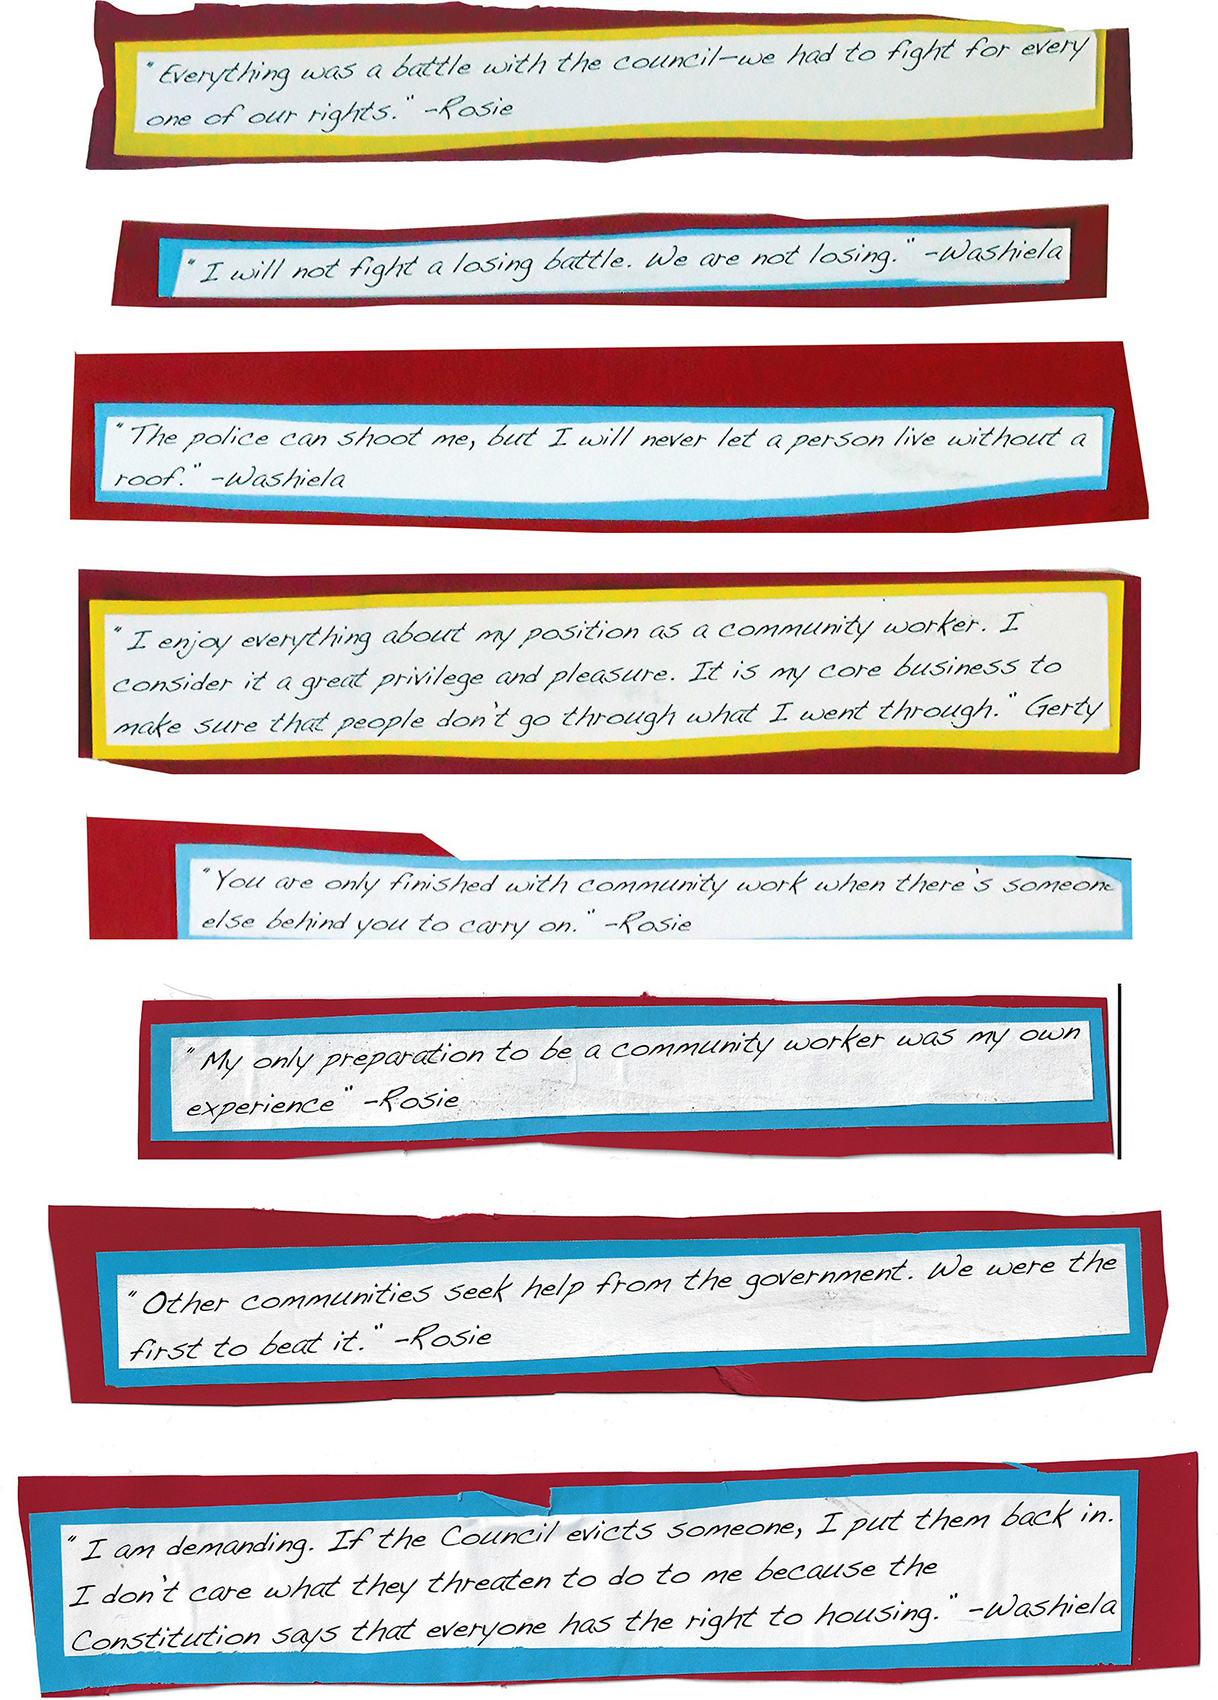 "Everything was a battle with the council—we had to fight for every
one of our rights." -Rosie
"I will not fight a losing battle. We are not losing." -Washiela
"The police can shoot me, but I will never let a person live without a
roof." -Washiela
"I enjoy everything about my position as a community worker. I
consider it a great privilege and pleasure. It is my core business to
make sure that people don't go through what I went through." Gerty
"You are only finished with community work when there's someone
else behind you to carry on." -Rosie
"My only preparation to be a community worker was my own
experience" -Rosie
"Other communities seek help from the government. We were the
first to beat it." -Rosie
"I am demanding. If the Council evicts someone, I put them back in.
I don't care what they threaten to do to me because the
Constitution says that everyone has the right to housing." -Washiela